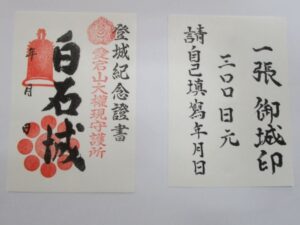 登城紀念證書
愛宕山大権現守護所
白石城
年
月
日
一張 御城印
三〇〇日元
請自己填寫年月日